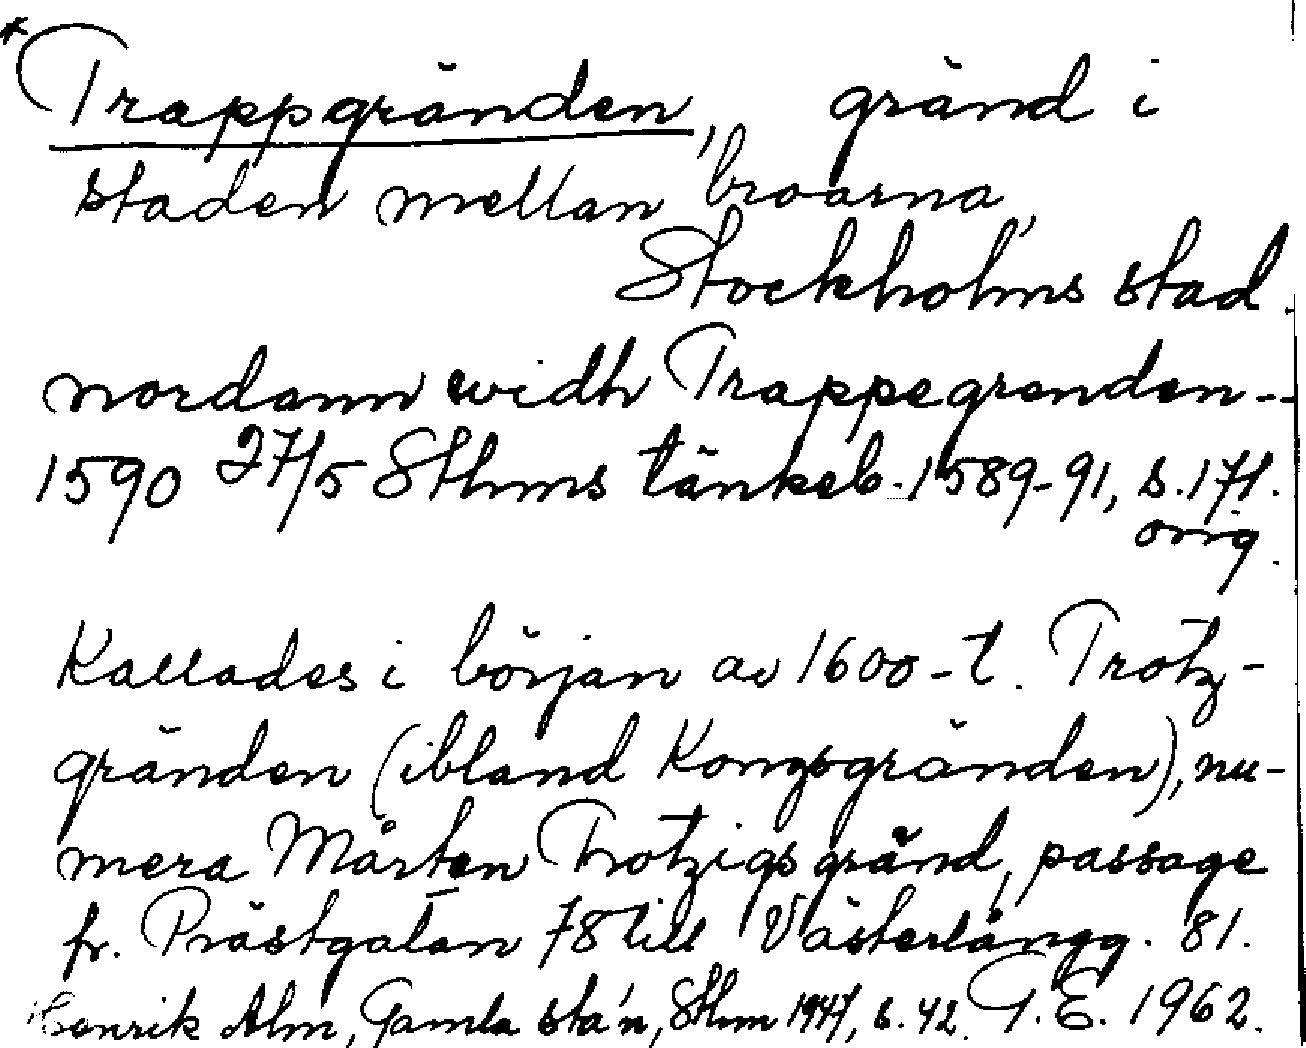 *Trappgränden, gränd i
staden mellan broarna,
Stockholms stad.
nordann widh Trappegrenden--
1590 27/5 Sthms tänkeb. 1589-91, s. 171.
orig.
Kallades i början av 1600-t. Trotz-
gränden (ibland Kongsgränden), nu-
mera Mårten Trotzigs gränd, passage
fr. Prästgatan 78 till Västerlångg. 81.
Henrik Alm, Gamla sta'n, Sthm 1947, s. 42. G.E. 1962.